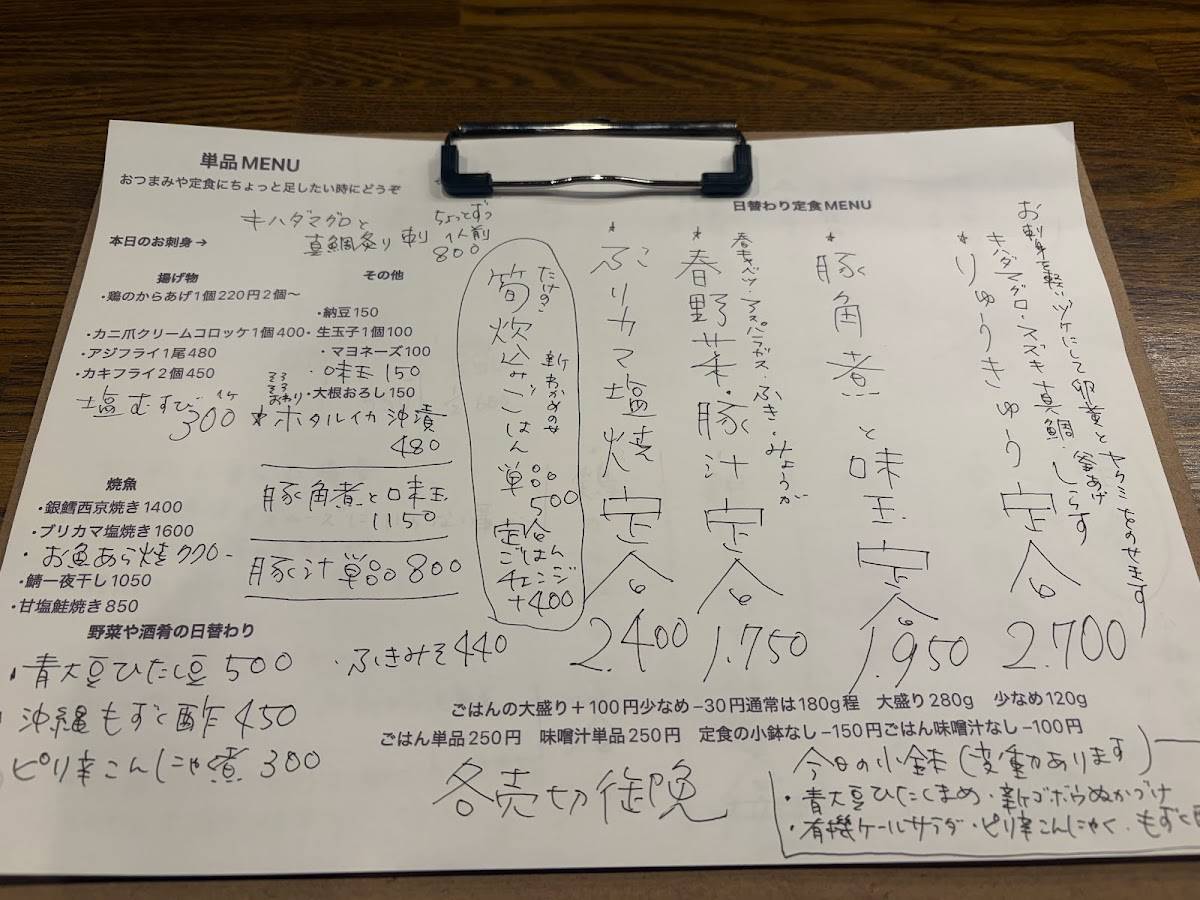 単品MENU
おつまみや定食にちょっと足したい時にどうぞ
本日のお刺身→
キハダマグロと
真鯛炙り刺
ちょっとずつ
1人前
800
揚げ物
・鶏のからあげ1個220円2個〜
・カニ爪クリームコロッケ1個400
・アジフライ1尾480
・カキフライ2個450
塩むすび 1ケ
300
その他
・納豆150
・生玉子1個100
・マヨネーズ100
・味玉150
・大根おろし150
そろそろ
おわり
*ホタルイカ沖漬
480
豚角煮と味玉
1150
豚汁単品800
焼魚
・銀鱈西京焼き1400
・ブリカマ塩焼き1600
・お魚あら焼
・鯖一夜干し1050
・甘塩鮭焼き850
野菜や酒肴の日替わり
・青大豆ひたし豆500
・沖縄もずく酢450
・ピリ辛こんにゃく煮300
・ふきみそ440
たけの
筍炊込みごはん
新わかめのせ
単品
500
定食
ごはん
チェンジ
+400
日替わり定食MENU
*ぶりカマ塩焼定食
2.400
*春野菜・豚汁定食
春キャベツ・アスパラガス・ふき・みょうが
1.750
*豚角煮と味玉定食
1.950
*りゅうきゅう定食
キハダマグロ・スズキ・真鯛・釜あげしらす
お刺身を軽いヅケにして卵黄とヤクミをのせます
2.700
ごはんの大盛り+100円少なめ−30円通常は180g程 大盛り280g 少なめ120g
ごはん単品250円 味噌汁単品250円 定食の小鉢なし−150円ごはん味噌汁なし−100円
各売切御免
今日の小鉢(変動あります)
・青大豆ひたしまめ・新ゴボウぬかづけ
・有機ケールサラダ・ピリ辛こんにゃく・もずく酢